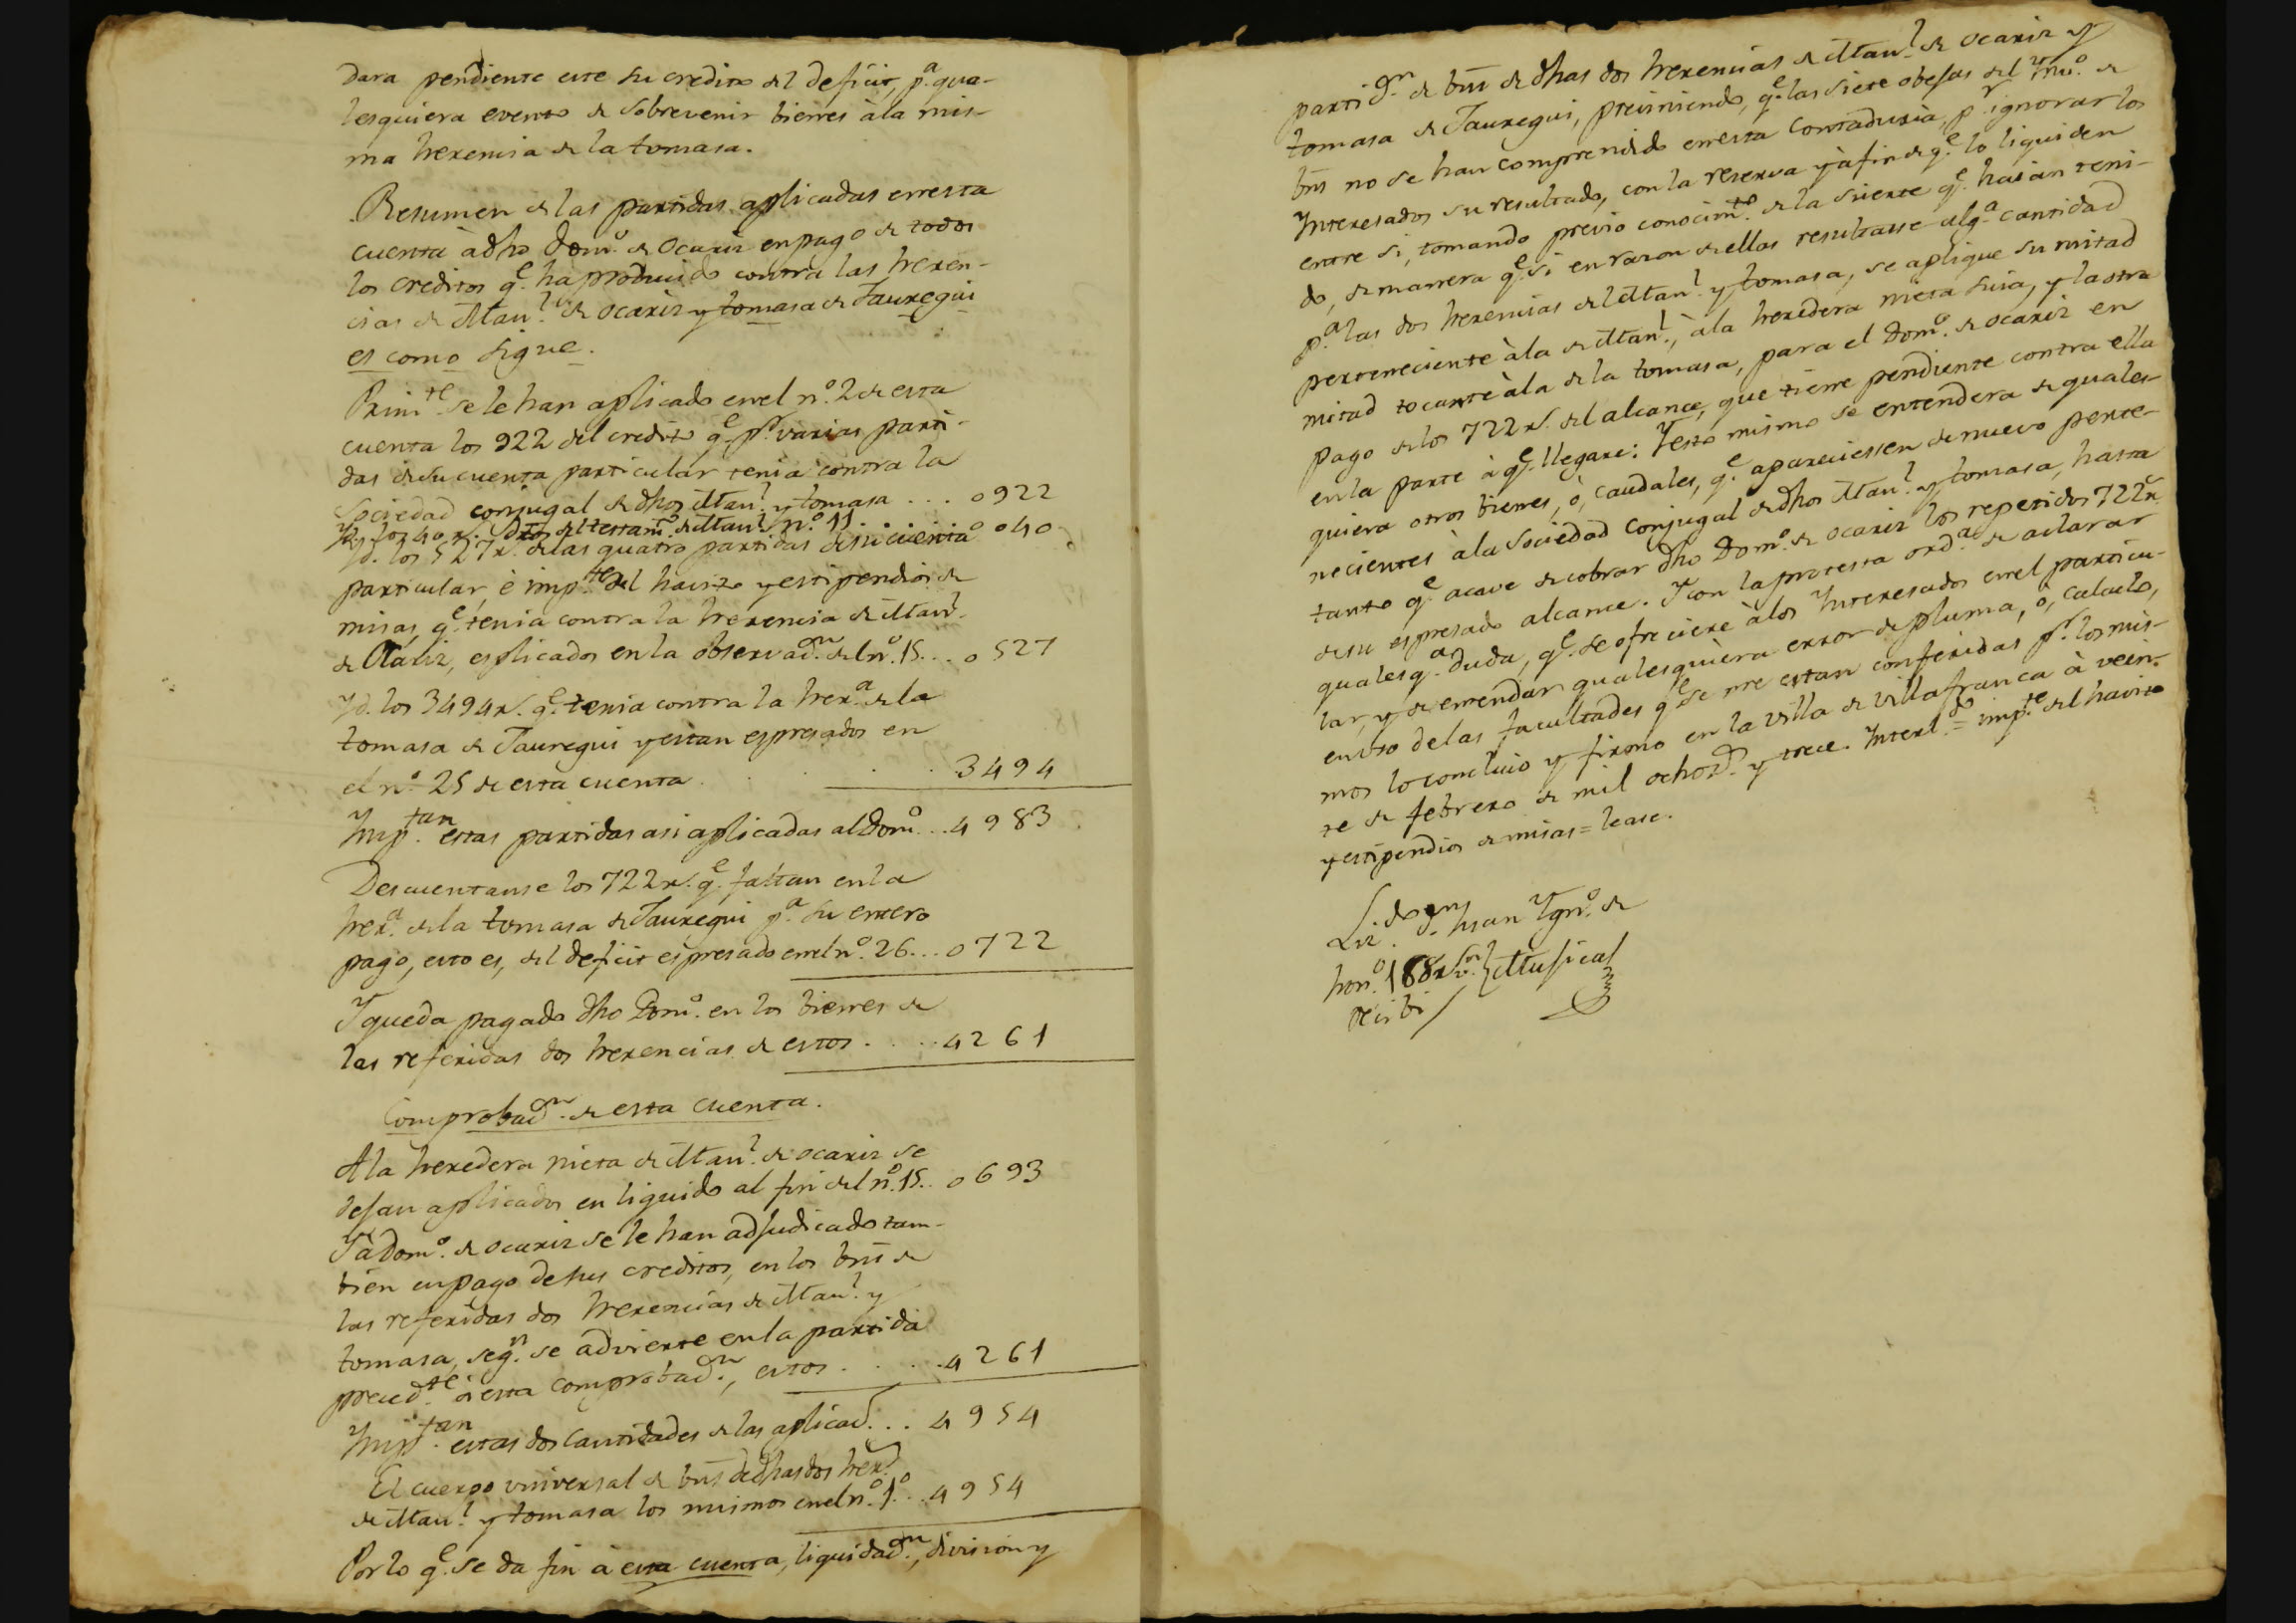 dara pendiente este su credito del deficit, p.a qua-
lesquiera evento de sobrevenir bienes à la mis-
ma herencia de la tomasa.
Resumen de las partidas aplicadas en esta
cuenta à dho Dom.o de Ocariz en pago de todos
los creditos q.e ha producido contra las heren-
cias de Man.l de Ocariz y tomasa de Jauregui
es como sigue.
Prim.te se le han aplicado en el n.o 2 de esta
cuenta los 922 del credito q.e p.r varias parti-
das de su cuenta particular tenia contra la
Sociedad conjugal de dhos Man.l y tomasa ... 0922
Yd. los 40 r.s dros del testam.o de Man.l n.o 11 .... 040
Yd. los 527 r.s de las quatro partidas de su cuenta
particular, è imp.te del havito y estipendios de
misas, q.e tenia contra la herencia de Man.l
de Ocariz, esplicados en la observac.on del n.o 15... 0527
Yd. los 3494 r.s q.e tenia contra la her.a de la
tomasa de Jauregui y estan espresados en
el n.o 25 de esta cuenta . . . . 3494
Imp.tan estas partidas asi aplicadas al Dom.o ... 4983
Descuentanse los 722 r.s q.e faltan en la
her.a de la tomasa de Jauregui p.a su entero
pago, esto es, del deficit espresado en el n.o 26... 0722
Y queda pagado dho Dom.o en los bienes de
las referidas dos herencias de estos . . . . 4261
Comprobac.on de esta cuenta.
A la heredera nieta de Man.l de Ocariz se
dejan aplicados en liquido al fin del n.o 15.. 0693
Y à Dom.o de Ocariz se le han adjudicado tam-
bien en pago de sus creditos, en los bns de
las referidas dos herencias de Man.l y
tomasa, seg.n se advierte en la partida
preced.te à esta comprobac.on, estos . . . . 4261
Imp.tan estas dos cantidades de las aplicad. . . 4954
El cuerpo universal de bns de dhas dos her.s
de Man.l y tomasa los mismos en el n.o 1.o .. 4954
Por lo q.e se da fin à esta cuenta, liquidac.on, division y
partic.on de bns de dhas dos herencias de Man.l de Ocariz y
tomasa de Jauregui, previniendo, q.e las siete obejas del Ynv.o de
bns no se han comprendido en esta Contaduria, p.r ignorar los
Interesados su resultado, con la reserva y à fin de q.e lo liquiden
entre si, tomando previo conocim.to de la suerte q.e haian teni-
do, de manera q.e si en razon de ellas resultasse alg.a cantidad
p.a las dos herencias del Man.l y tomasa, se aplique su mitad
perteneciente à la de Man.l, à la heredera nieta suia, y la otra
mitad tocante à la de la tomasa, para el Dom.o de Ocariz en
pago de los 722 r.s del alcance, que tiene pendiente contra ella
en la parte à q.e llegare: Y esto mismo se entendera de quales-
quiera otros bienes, ò, caudales, q.e apareciessen de nuevo perte-
necientes à la Sociedad conjugal de dhos Man.l y tomasa, hasta
tanto q.e acave de cobrar dho Dom.o de Ocariz los repetidos 722 r.s
de su espresado alcance. Y con la protesta ord.a de aclarar
qualesq.a duda, q.e se ofreciere à los Interesados en el particu-
lar, y de enmendar qualesquiera error de pluma, ò, calculo,
en uso de las facultades q.e se me estan conferidas p.r los mis-
mos lo concluio y firmo en la Villa de Villafranca à vein-
te de febrero de mil ochoz.s y trece. Interl.do = imp.te del havito
y estipendios de misas = lease.
Liz.do D.n Juan Ygn.o de
hon.o 188 r.s v.n Musical
Recibi